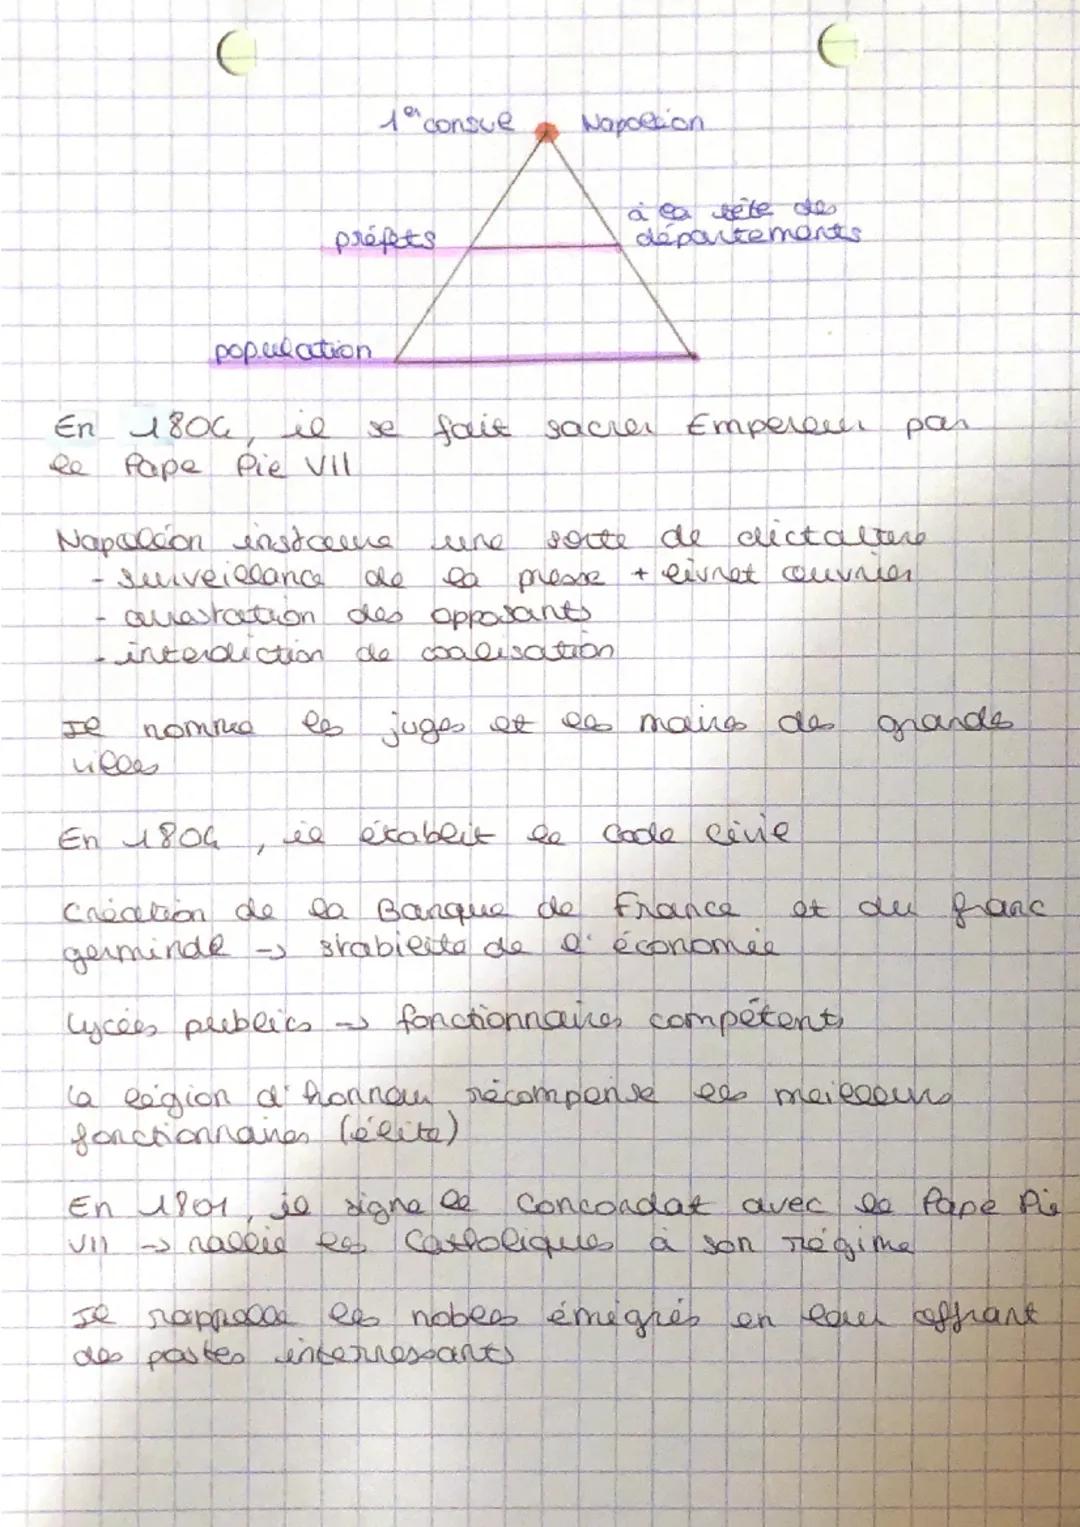 1er consul Napoléon
à la tête des
préfets départements
population
En 1804, il se fait sacrer Empereur par
le Pape Pie VII
Napoléon instaure une sorte de dictature
- surveillance de la presse + livret ouvrier
- arrestation des opposants
- interdiction de coalisation
Il nomme les juges et les maires des grandes
villes
En 1804, il établit le Code Civil
Création de la Banque de France et du franc
germinde -> stabilité de l'économie
Lycées publics -> fonctionnaires compétents
la légion d'honneur récompense les meilleurs
fonctionnaires (élite)
En 1801, il signe le Concordat avec le Pape Pie
VII -> rallie les Catholiques à son régime
Il rappelle les nobles émigrés en leur offrant
des postes interressants